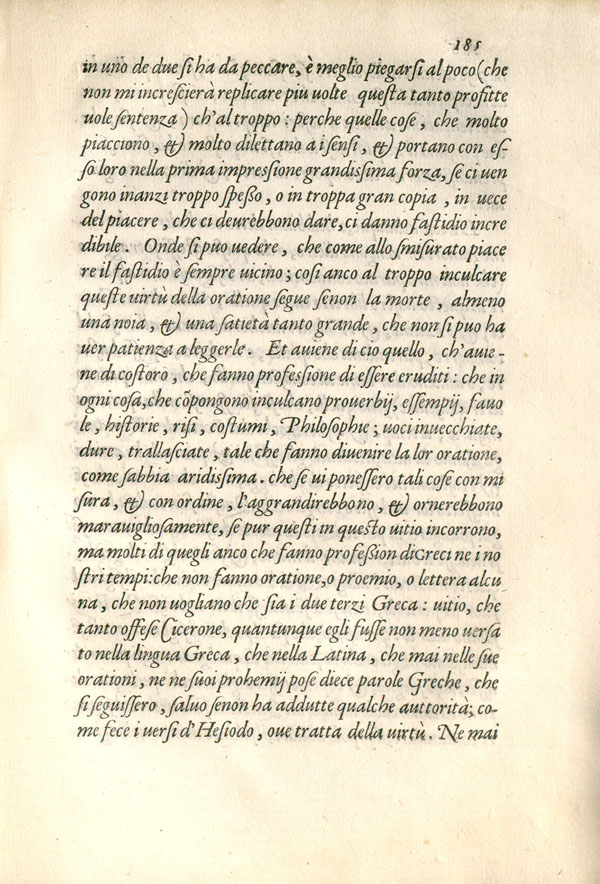 185
in uno de due si ha da peccare, è meglio piegarsi al poco (che
non mi increscierà replicare piu uolte questa tanto profitte
uole sentenza) ch'al troppo: perche quelle cose, che molto
piacciono, & molto dilettano a i sensi, & portano con es-
so loro nella prima impressione grandissima forza, se ci uen
gono inanzi troppo spesso, o in troppa gran copia, in uece
del piacere, che ci deurèbbono dare, ci danno fastidio incre
dibile. Onde si puo uedere, che come allo smisurato piace
re il fastidio è sempre uicino; cosi anco al troppo inculcare
queste uirtù della oratione segue senon la morte, almeno
una noia, & una satietà tanto grande, che non si puo ha
uer patienza a leggerle. Et auiene di cio quello, ch'auie-
ne di costoro, che fanno professione di essere eruditi: che in
ogni cosa, che cõpongono inculcano prouerbij, essempij, fauo
le, historie, risi, costumi, Philosophie; uoci inuecchiate,
dure, trallasciate, tale che fanno diuenire la lor oratione,
come sabbia aridissima. che se ui ponessero tali cose con mi
sura, & con ordine, l'aggrandirebbono, & ornerebbono
marauigliosamente, se pur questi in questo uitio incorrono,
ma molti di quegli anco che fanno profession di Greci ne i no
stri tempi: che non fanno oratione, o proemio, o lettera alcu
na, che non uogliano che sia i due terzi Greca: uitio, che
tanto offese Cicerone, quantunque egli fusse non meno uersa
to nella lingua Greca, che nella Latina, che mai nelle sue
orationi, ne ne suoi prohemij pose diece parole Greche, che
si seguissero, saluo senon ha addutte qualche auttorità; co-
me fece i uersi d'Hesiodo, oue tratta della uirtù. Ne mai